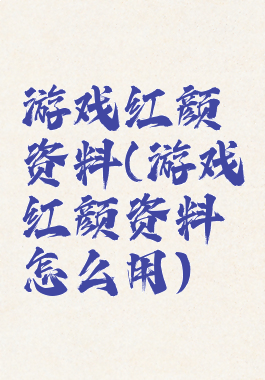 游戏红颜
资料(游戏
红颜资料
怎么用)